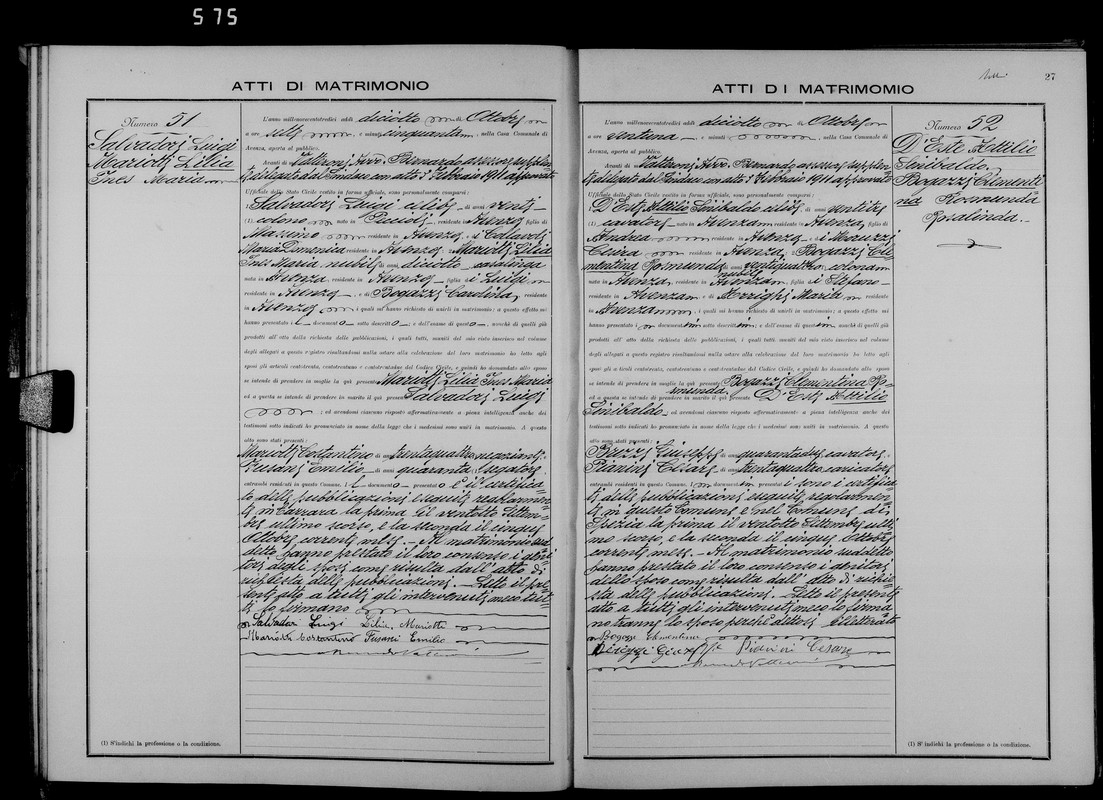 575
ATTI DI MATRIMONIO
Numero 51
Salvadori Luigi
Mariotti Lilia
Ines Maria
L'anno millenovecentotredici addì diciotto di Ottobre
a ore sette, e minuti cinquanta, nella Casa Comunale di
Avenza, aperta al pubblico.
Avanti di me Vatteroni Avv. Bernardo assessore supplen
te delegato dal Sindaco con atto 3 Febbraio 1911 approvato
Uffiziale dello Stato Civile vestito in forma ufficiale, sono personalmente comparsi:
1° Salvadori Luigi celibe, di anni venti
(1) colono nato in residente in Avenza figlio di
Massimo residente in Avenza, e di
Maria Domenica residente in Avenza; 2° Mariotti Lilia
Ines Maria nubile di anni diciotto casalinga
nata in Avenza residente in Avenza figlia di Luigi
residente in Avenza e di Bogazzi Carolina residente
in Avenza, i quali mi hanno richiesto di unirli in matrimonio; a questo effetto mi
hanno presentato il documento sotto descritto; e dall'esame di questo, nonchè di quelli già
prodotti all'atto della richiesta delle pubblicazioni, i quali tutti, muniti del mio visto inserisco nel volume
degli allegati a questo registro risultandomi nulla ostare alla celebrazione del loro matrimonio ho letto agli
sposi gli articoli centotrenta, centotrentuno e centotrentadue del Codice Civile, e quindi ho domandato allo sposo
se intende di prendere in moglie la quì presente Mariotti Lilia Ines Maria
ed a questa se intende di prendere in marito il quì presente Salvadori Luigi
; ed avendomi ciascuno risposto affermativamente a piena intelligenza anche dei
testimoni sotto indicati ho pronunciato in nome della legge che i medesimi sono uniti in matrimonio. A questo
atto sono stati presenti:
Mariotti Costantino di anni trentaquattro negoziante
Fusani Emilio di anni quaranta
entrambi residenti in questo Comune. Il documento presentato è il certifica
to delle pubblicazioni eseguite regolarmen
te in Carrara la prima il ventotto Settem
bre ultimo scorso, e la seconda il cinque
Ottobre corrente mese. Al matrimonio sud
detto hanno prestato il loro consenso i geni
tori degli sposi come risulta dall'atto di
richiesta delle pubblicazioni. Letto il pre
sente atto a tutti gli intervenuti, meco tutti
lo firmano
Salvadori Luigi Lilia Mariotti
Mariotti Costantino Fusani Emilio
(1) S'indichi la professione o la condizione.
27
ATTI DI MATRIMOMIO
Numero 52
D'Este Attilio
Sinibaldo
Bogazzi Clementi
na Rosmunda
L'anno millenovecentotredici addì diciotto di Ottobre
a ore ventuna, e minuti, nella Casa Comunale di
Avenza, aperta al pubblico.
Avanti di me Vatteroni Avv. Bernardo assessore supplen
te delegato dal Sindaco con atto 3 Febbraio 1911 approvato
Uffiziale dello Stato Civile vestito in forma ufficiale, sono personalmente comparsi:
1° D'Este Attilio Sinibaldo celibe, di anni ventitre
(1) cavatore nato in Avenza residente in Avenza figlio di
Andrea residente in Avenza, e di Moruzzi
residente in Avenza; 2° Bogazzi Cle
mentina Rosmunda nubile di anni ventiquattro colona
nata in Avenza residente in Avenza figlia di Stefano
residente in Avenza e di Menzighi Maria residente
in Avenza, i quali mi hanno richiesto di unirli in matrimonio; a questo effetto mi
hanno presentato i documenti sotto descritti; e dall'esame di questi, nonchè di quelli già
prodotti all'atto della richiesta delle pubblicazioni, i quali tutti, muniti del mio visto inserisco nel volume
degli allegati a questo registro risultandomi nulla ostare alla celebrazione del loro matrimonio ho letto agli
sposi gli articoli centotrenta, centotrentuno e centotrentadue del Codice Civile, e quindi ho domandato allo sposo
se intende di prendere in moglie la quì presente Bogazzi Clementina Ro
smunda
ed a questa se intende di prendere in marito il quì presente D'Este Attilio
Sinibaldo ed avendomi ciascuno risposto affermativamente a piena intelligenza anche dei
testimoni sotto indicati ho pronunciato in nome della legge che i medesimi sono uniti in matrimonio. A questo
atto sono stati presenti:
Giuseppe di anni quarantadue cavatore
Pianini Cesare di anni trentaquattro
entrambi residenti in questo Comune. I documenti presentati sono i certifica
ti delle pubblicazioni eseguite regolarmen
te in questo Comune e nel Comune di
Spezia la prima il ventotto Settembre ulti
mo scorso e la seconda il cinque Ottobre
corrente mese. Al matrimonio suddetto
hanno prestato il loro consenso i genitori
dello sposo come risulta dall'atto di richie
sta delle pubblicazioni. Letto il presente
atto a tutti gli intervenuti, meco lo firma
no tranne lo sposo perchè dettosi illetterato
Bogazzi Clementina
Giuseppe Cesare
(1) S'indichi la professione o la condizione.